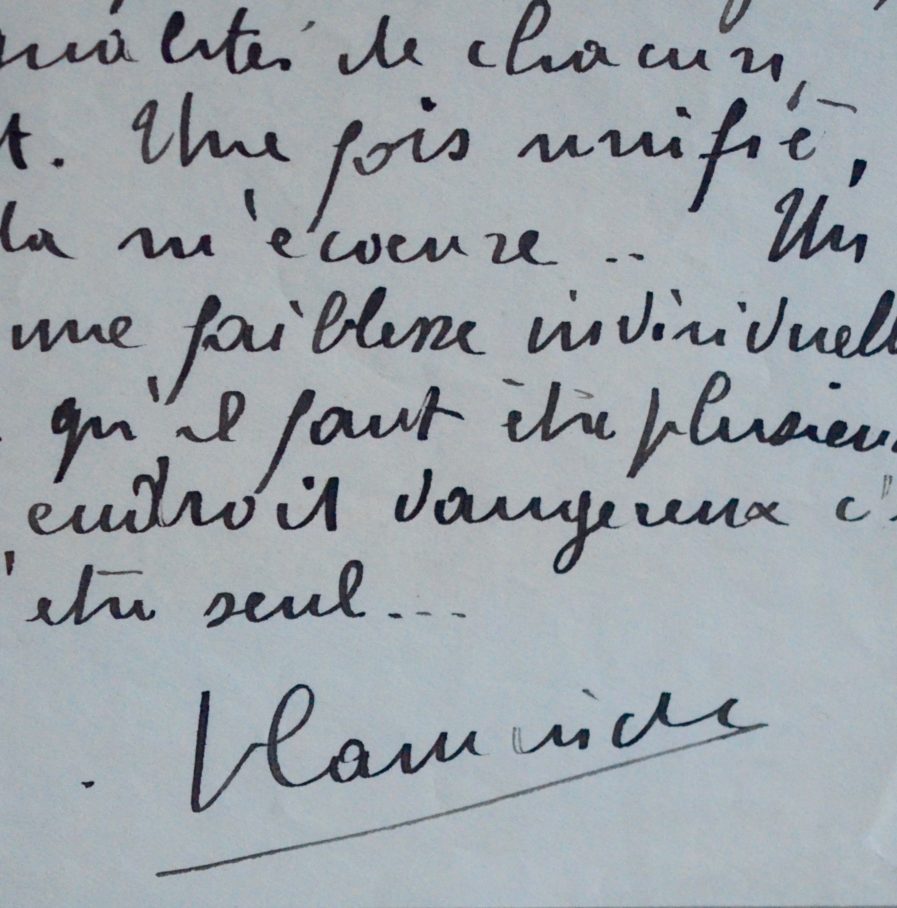 qualités de chacun,
t. Une fois unifié,
la m'écoeure ..  Un
une faiblesse individuell
qu'il faut être plusieu
endroit dangereux c'
'être seul...
Vlaminck